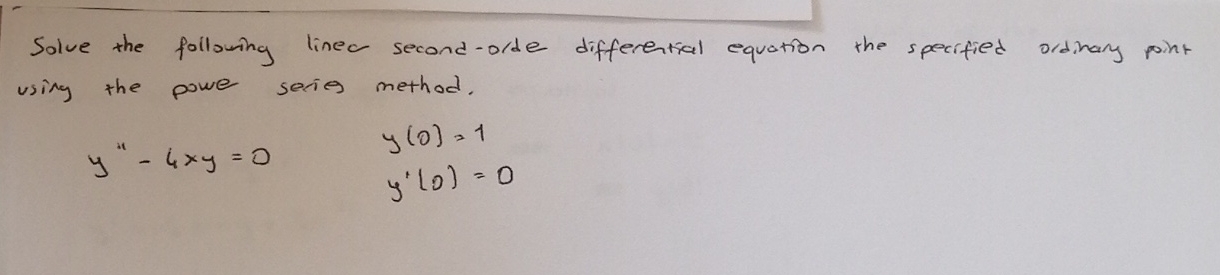 Solve the following linec second-orde differential equation the specified ordinary point
using the powe series method.
y" - 4xy = 0
y(0) = 1
y'(0) = 0